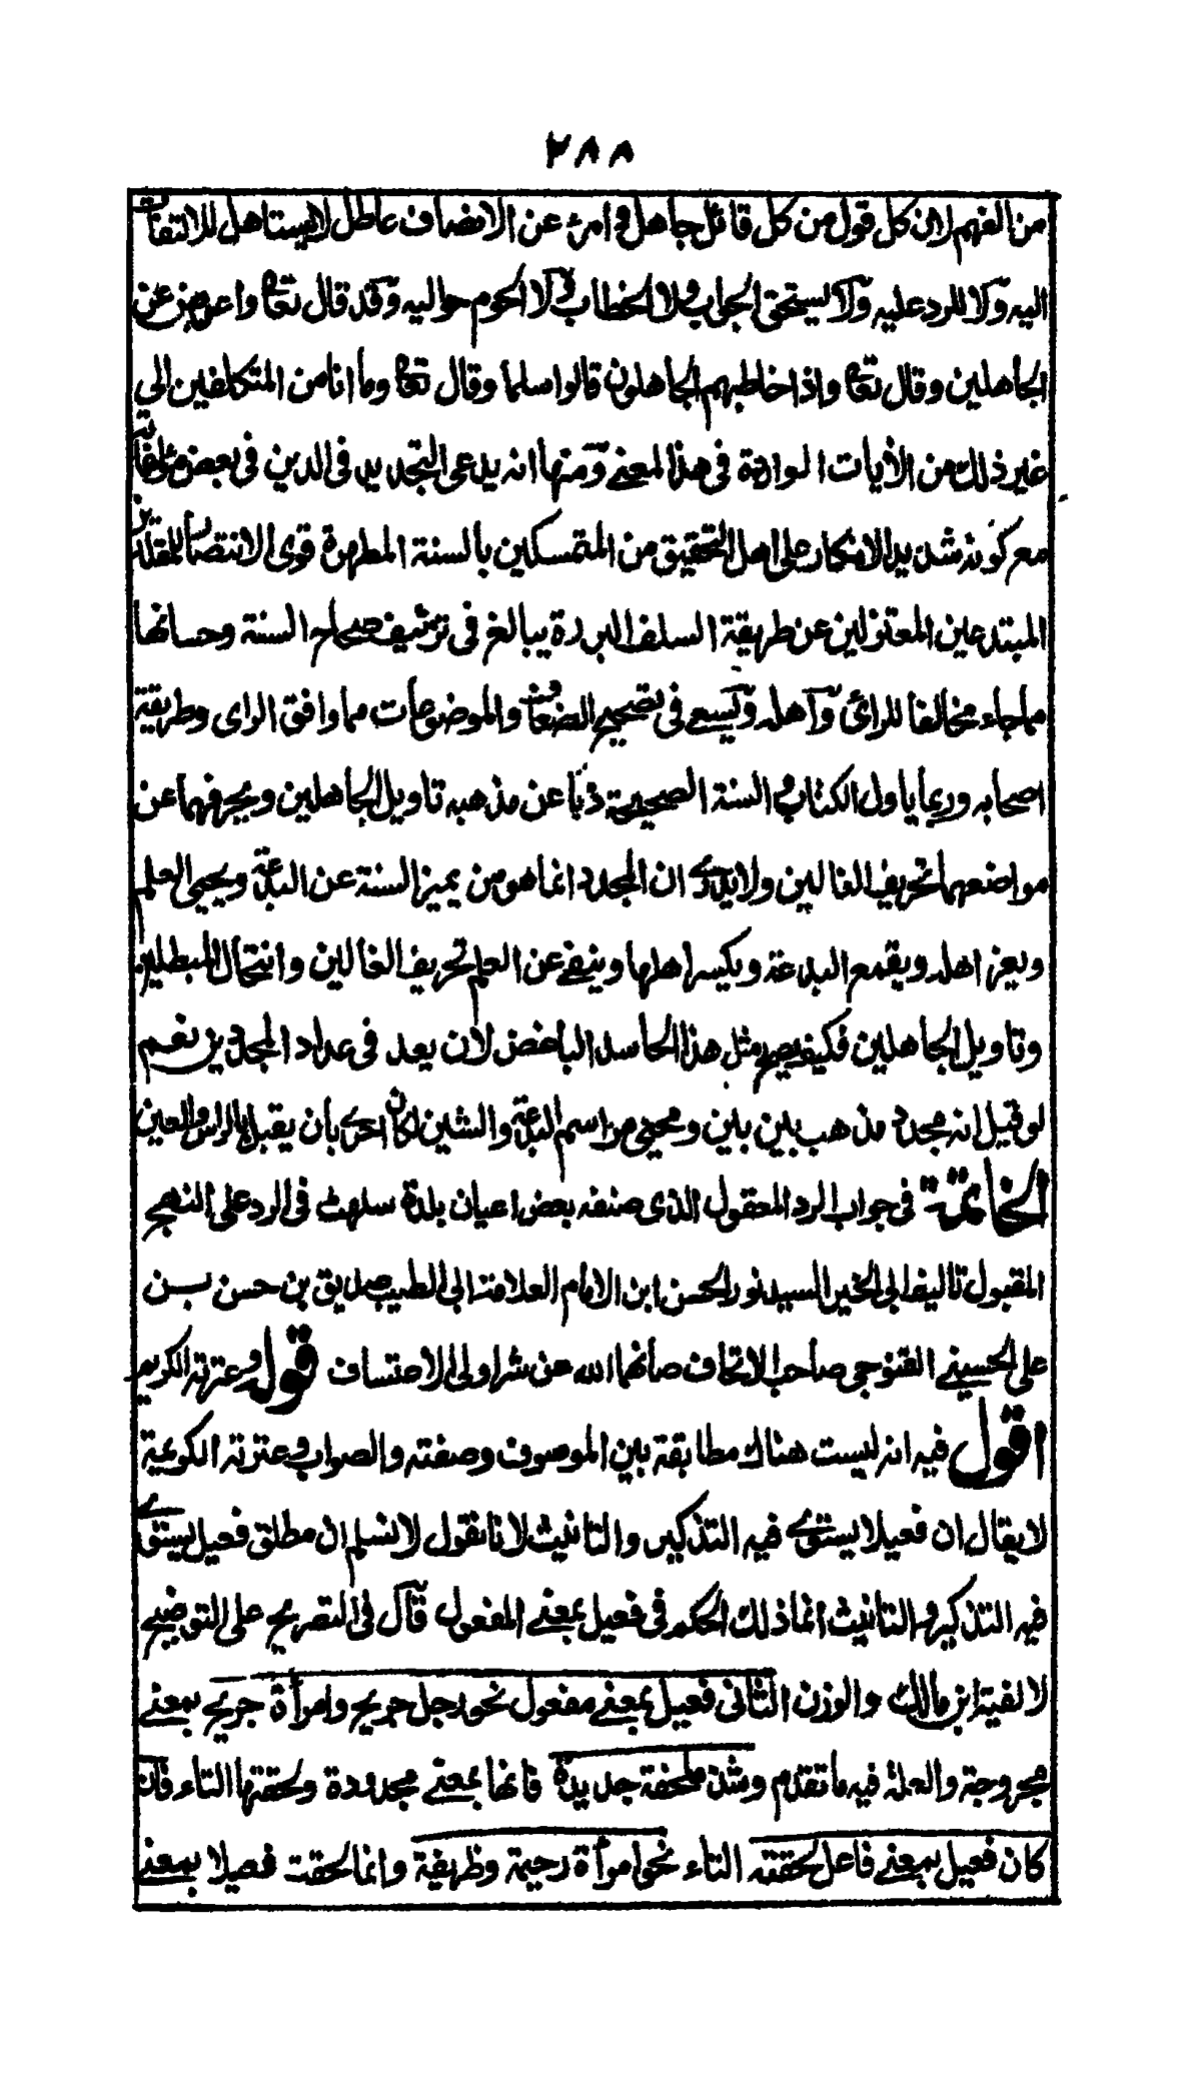 ٢٨٨
من الفهم لان كل قول من كل قائل جاهل و امرئ عن الانصاف عاطل لا يستاهل للالتفات
اليه ولا للرد عليه ولا يستحق الجواب ولا الخطاب ولا الحوم حواليه وقد قال تعا واعرض عن
الجاهلين وقال تعا واذا خاطبهم الجاهلون قالوا سلما وقال تعا وما انا من المتكلفين الى
غير ذلك من الأيات الواردة فى هذا المعنے ومنها انه يدعى التجديد فى الدين فى بعض مؤلفاته
مع كونه شديد الانكار على اهل التحقيق من المتمسكين بالسنة المطهرة قوى الانتصار للمقلدين
المبتدعين المعتزلين عن طريقة السلف البررة يبالغ فى تزئيف صحاح السنة وحسانها
مما جاء مخالفا للرائ وآهله ويسعے فى تصحيح الضعاف والموضوعات مما وافق الراى وطريقة
اصحابه وربما ياول الكتاب و السنة الصحيحة ذبا عن مذهبه تاويل الجاهلين ويحرفهما عن
مواضعهما تحريف الغالين ولا يدرے ان المجدد انما هو من يميز السنة عن البدعة ويحيى العلم
ويعز اهله ويقمع البدعة ويكسر اهلها وينفے عن العلم تحريف الغالين وانتحال المبطلين
وتاويل الجاهلين فكيف يصح مثل هذا الحاسد الباغض لان يعد فى عداد المجددين نعم
لو قيل انه مجدد مذهب بين بين ومحيى مراسم البدعة والشين لكان احرے بأن يقبل بالراس والعين
الخاتمة فى جواب الرد المعقول الذى صنفه بعض اعيان بلدة سلهٹ فى الرد على النهج
المقبول تاليف ابى الخير السيد نور الحسن ابن الامام العلامة ابى الطيب صديق بن حسن بن
على الحسينے القنوجى صاحب الاتحاف صانهما الله عن شر اولى الاعتساف قوله وعترته الكريم
اقول فيه انه ليست هناك مطابقة بين الموصوف وصفته والصواب وعترته الكريمة
لا يقال ان فعيلا يستوے فيه التذكير والتانيث لانا نقول لا نسلم ان مطلق فعيل يستوے
فيه التذكير والتانيث انما ذلك الحكم فى فعيل بمعنے المفعول قال فى التصريح على التوضيح
لالفية ابن مالك والوزن الثانى فعيل بمعنے مفعول نحو رجل جريح وامرأة جريح بمعنے
مجروحة والعلة فيه ما تقدم وشذ ملحفة جديدة فانها بمعنے مجدودة ولحقتها التاء فان
كان فعيل بمعنے فاعل لحقته التاء نحو امرأة رحيمة وظريفة وانما لحقت فعيلا بمعنے